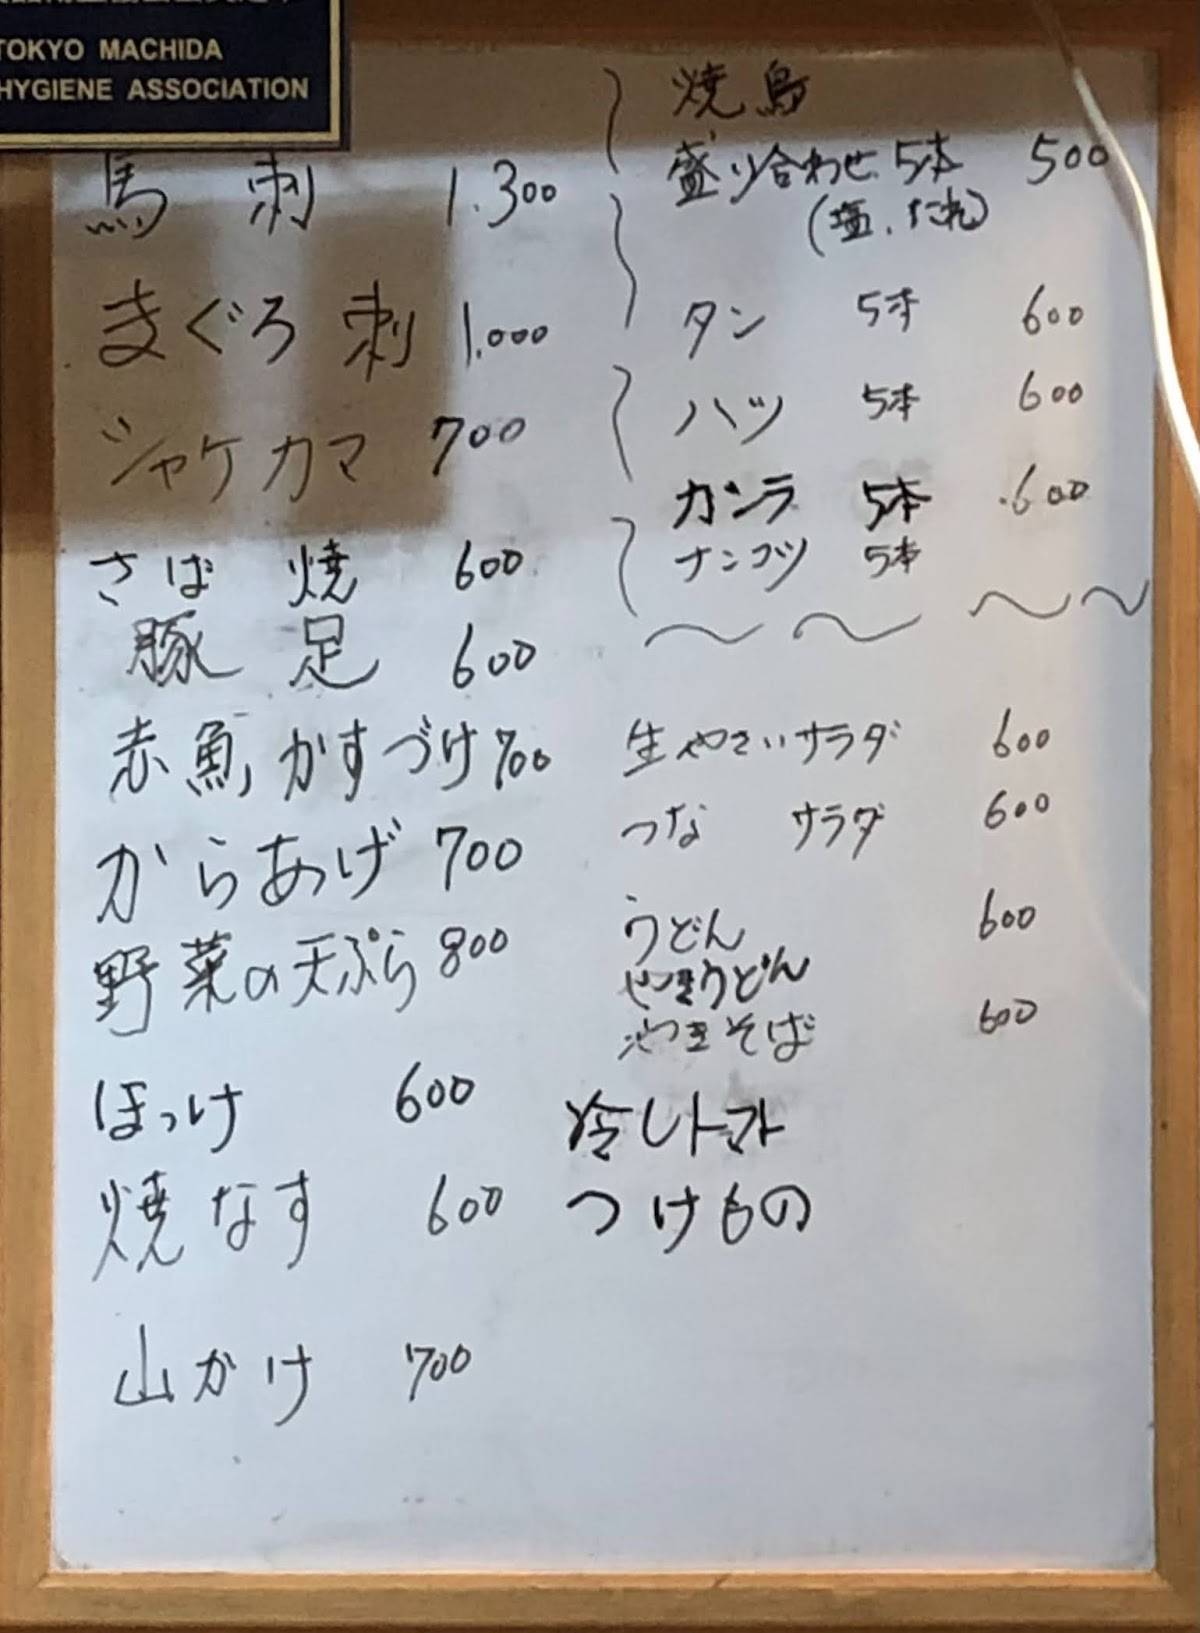 TOKYO MACHIDA
HYGIENE ASSOCIATION
馬刺 1.300
まぐろ刺 1.000
シャケカマ 700
さば焼 600
豚足 600
赤魚かすづけ 700
からあげ 700
野菜の天ぷら 800
ほっけ 600
焼なす 600
山かけ 700
焼鳥
盛り合わせ 5本 500
(塩、たれ)
タン 5本 600
ハツ 5本 600
カシラ 5本 600
ナンコツ 5本
生やさいサラダ 600
つな サラダ 600
うどん 600
やきうどん
やきそば 600
冷しトマト
つけもの